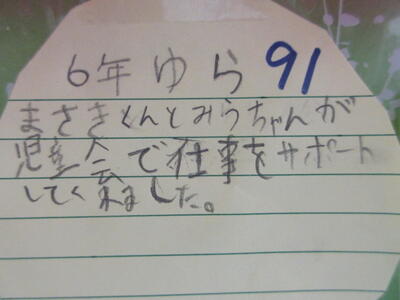 6年 ゆら 91
まさきくんとみうちゃんが
児童会で仕事をサポート
してくれました。